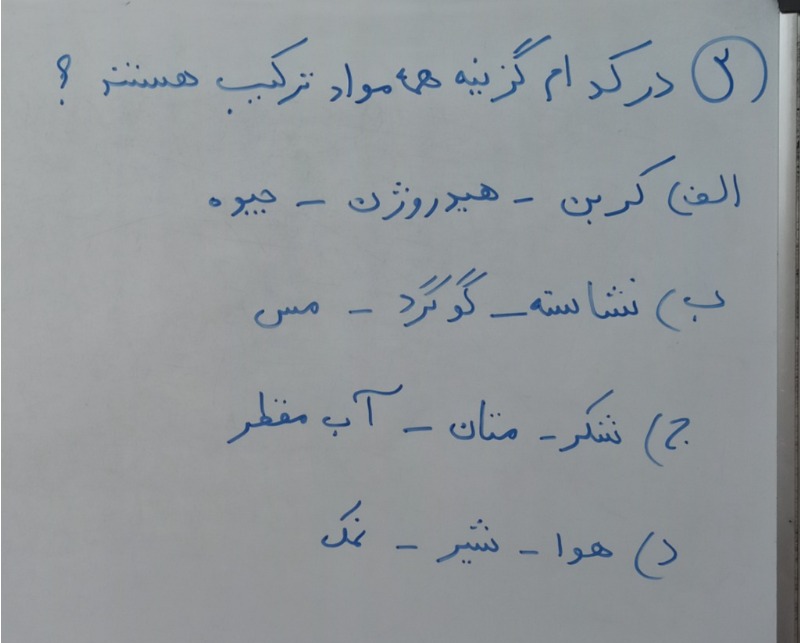 ۳) در کدام گزینه همه مواد ترکیب هستند ؟
الف) کربن - هیدروژن - جیوه
ب) نشاسته - گوگرد - مس
ج) شکر - متان - آب مقطر
د) هوا - شیر - نمک